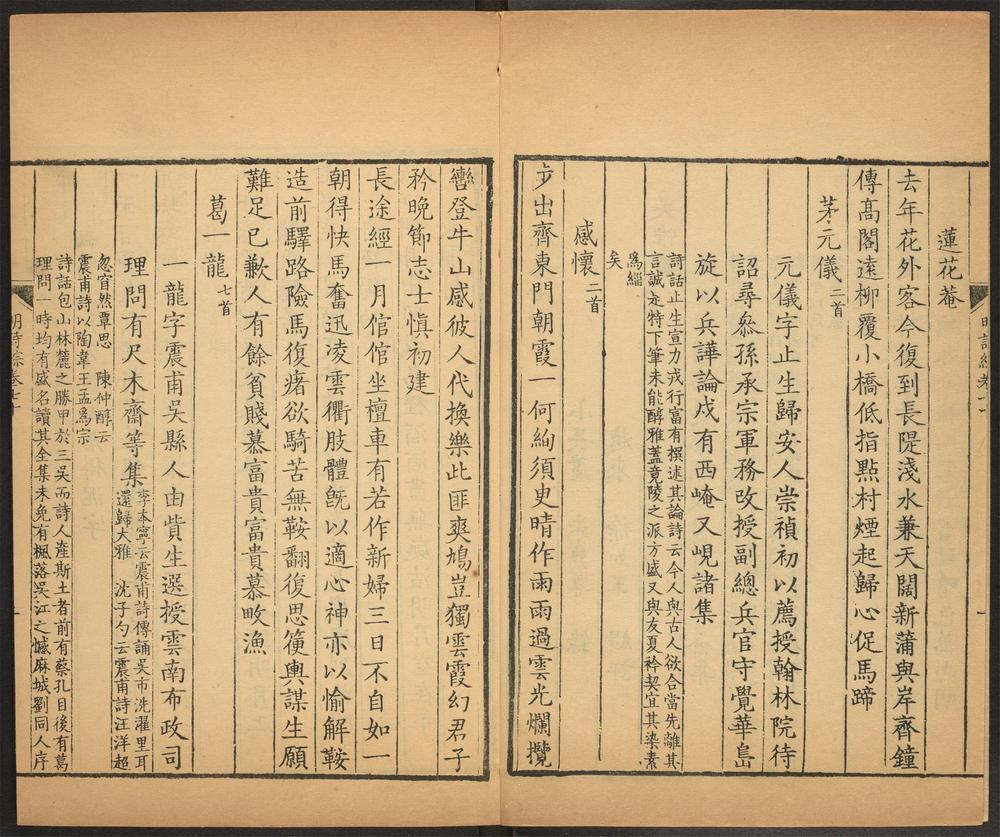 蓮花菴
去年花外客今復到長隄淺水兼天闊新蒲與岸齊鐘
傳高閣遠柳覆小橋低指點村煙起歸心促馬蹄
茅元儀二首
元儀字止生歸安人崇禎初以薦授翰林院待
詔尋叅孫承宗軍務改授副總兵官守覺華島
旋以兵譁論戍有西崦又峴諸集
詩話止生宣力戎行富有撰述其論詩云今人與古人欲合當先離其
言誠是特下筆未能醇雅蓋竟陵之派方盛又與友夏衿契宜其染素
為緇
矣
感懷二首
步出齊東門朝霞一何絢須臾晴作雨雨過雲光爛攬
轡登牛山感彼人代換樂此匪爽鳩豈獨雲霞幻君子
矜晚節志士慎初建
長途經一月倌倌坐檀車有若作新婦三日不自如一
朝得快馬奮迅凌雲衢肢體旣以適心神亦以愉解鞍
造前驛路險馬復瘏欲騎苦無鞍翻復思篗輿謀生願
難足已歉人有餘貧賤慕富貴富貴慕畋漁
葛一龍七首
一龍字震甫吳縣人由貲生選授雲南布政司
理問有尺木齋等集
李本寧云震甫詩傳誦吳市洗濯里耳
還歸大雅 沈子勺云震甫詩汪洋超
忽窅然覃思 陳仲醇云
震甫詩以陶韋王孟爲宗
詩話包山林麓之勝甲於三吳而詩人產斯土者前有蔡孔目後有葛
理問一時均有盛名讀其全集未免有楓落吳江之憾麻城劉同人序